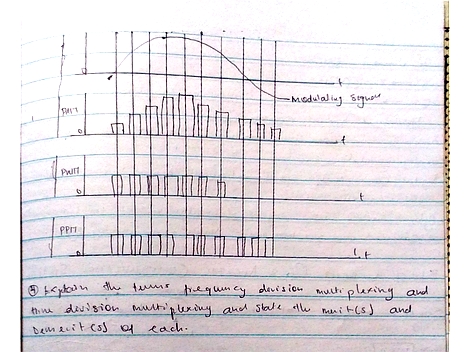 t
Modulating Signal
PAM
0
t
PWM
0
t
PPM
0
t
⑤ Explain the terms frequency devision multiplexing and
time devision multiplexing and state the merit(s) and
Demerit(s) of each.